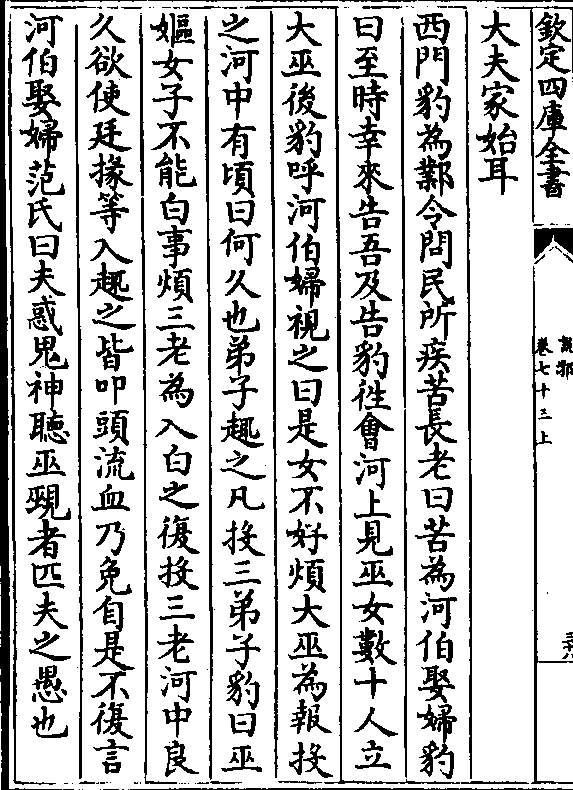 欽定四庫全書
說郛
卷七十三上
大夫家始耳
西門豹為鄴令問民所疾苦長老曰苦為河伯娶婦豹
曰至時幸來告吾及告豹徃會河上見巫女數十人立
大巫後豹呼河伯婦視之曰是女不好煩大巫為報投
之河中有頃曰何久也弟子趣之凡投三弟子豹曰巫
嫗女子不能白事煩三老為入白之復投三老河中良
久欲使廷掾等入趣之皆叩頭流血乃免自是不復言
河伯娶婦范氏曰夫惑鬼神聽巫覡者匹夫之愚也